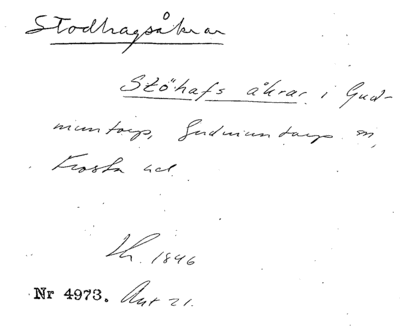 Stodhagsåkrar
Stöhafs åkrar i Gud-
muntorp, Gudmuntorps sn,
Frosta hd.
Lh. 1846
Nr 4973. Aut 21.